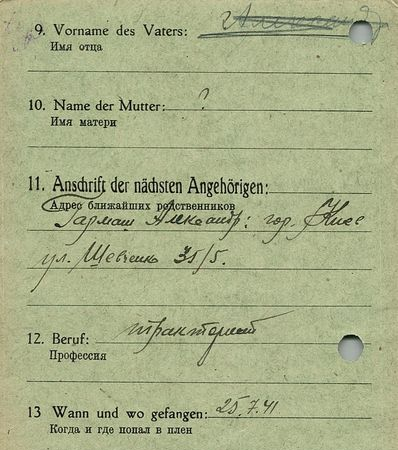 9. Vorname des Vaters: Александр
Имя отца
10. Name der Mutter: ?
Имя матери
11. Anschrift der nächsten Angehörigen:
Адрес ближайших родственников
Гармаш Александр: гор. Киев
ул. Шевченко 35/5.
12. Beruf: тракторист
Профессия
13 Wann und wo gefangen: 25.7.41
Когда и где попал в плен